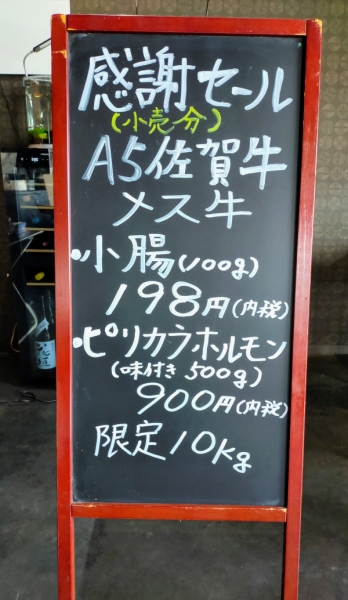 感謝セール
(小売分)
A5佐賀牛
メス牛
・小腸(100g)
198円(内税)
・ピリカラホルモン
(味付き500g)
900円(内税)
限定10kg